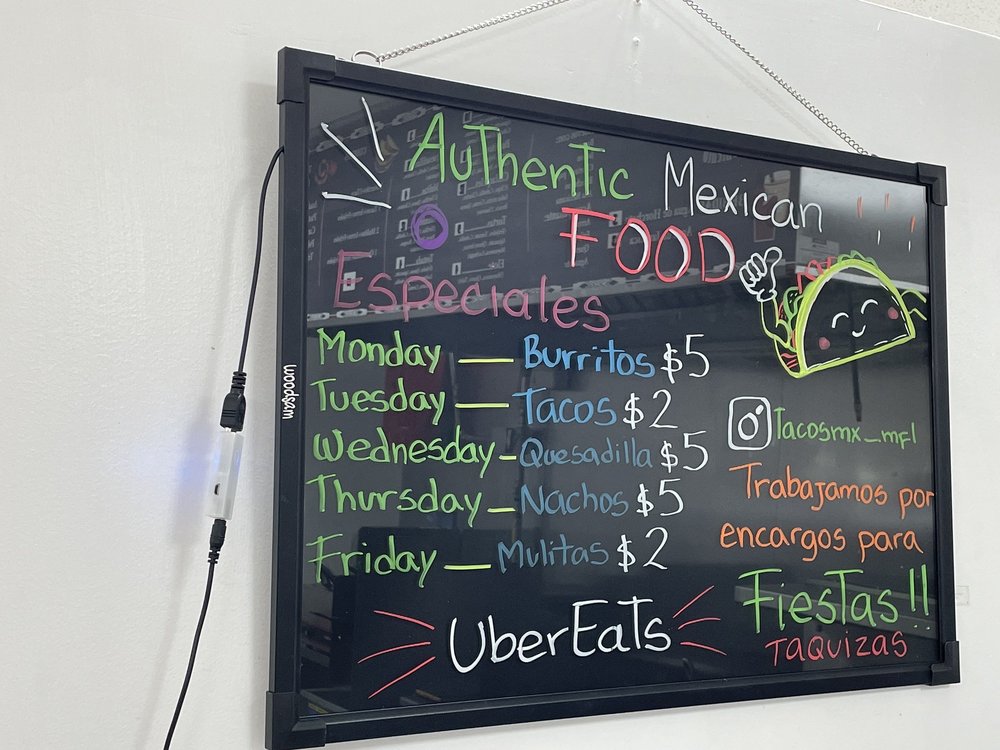 Authentic Mexican
FOOD
Especiales
Monday — Burritos $5
Tuesday — Tacos $2
Wednesday - Quesadilla $5
Thursday - Nachos $5
Friday — Mulitas $2
UberEats
Tacosmx_mfl
Trabajamos por
encargos para
Fiestas!!
TAQUIZAS
woodsam